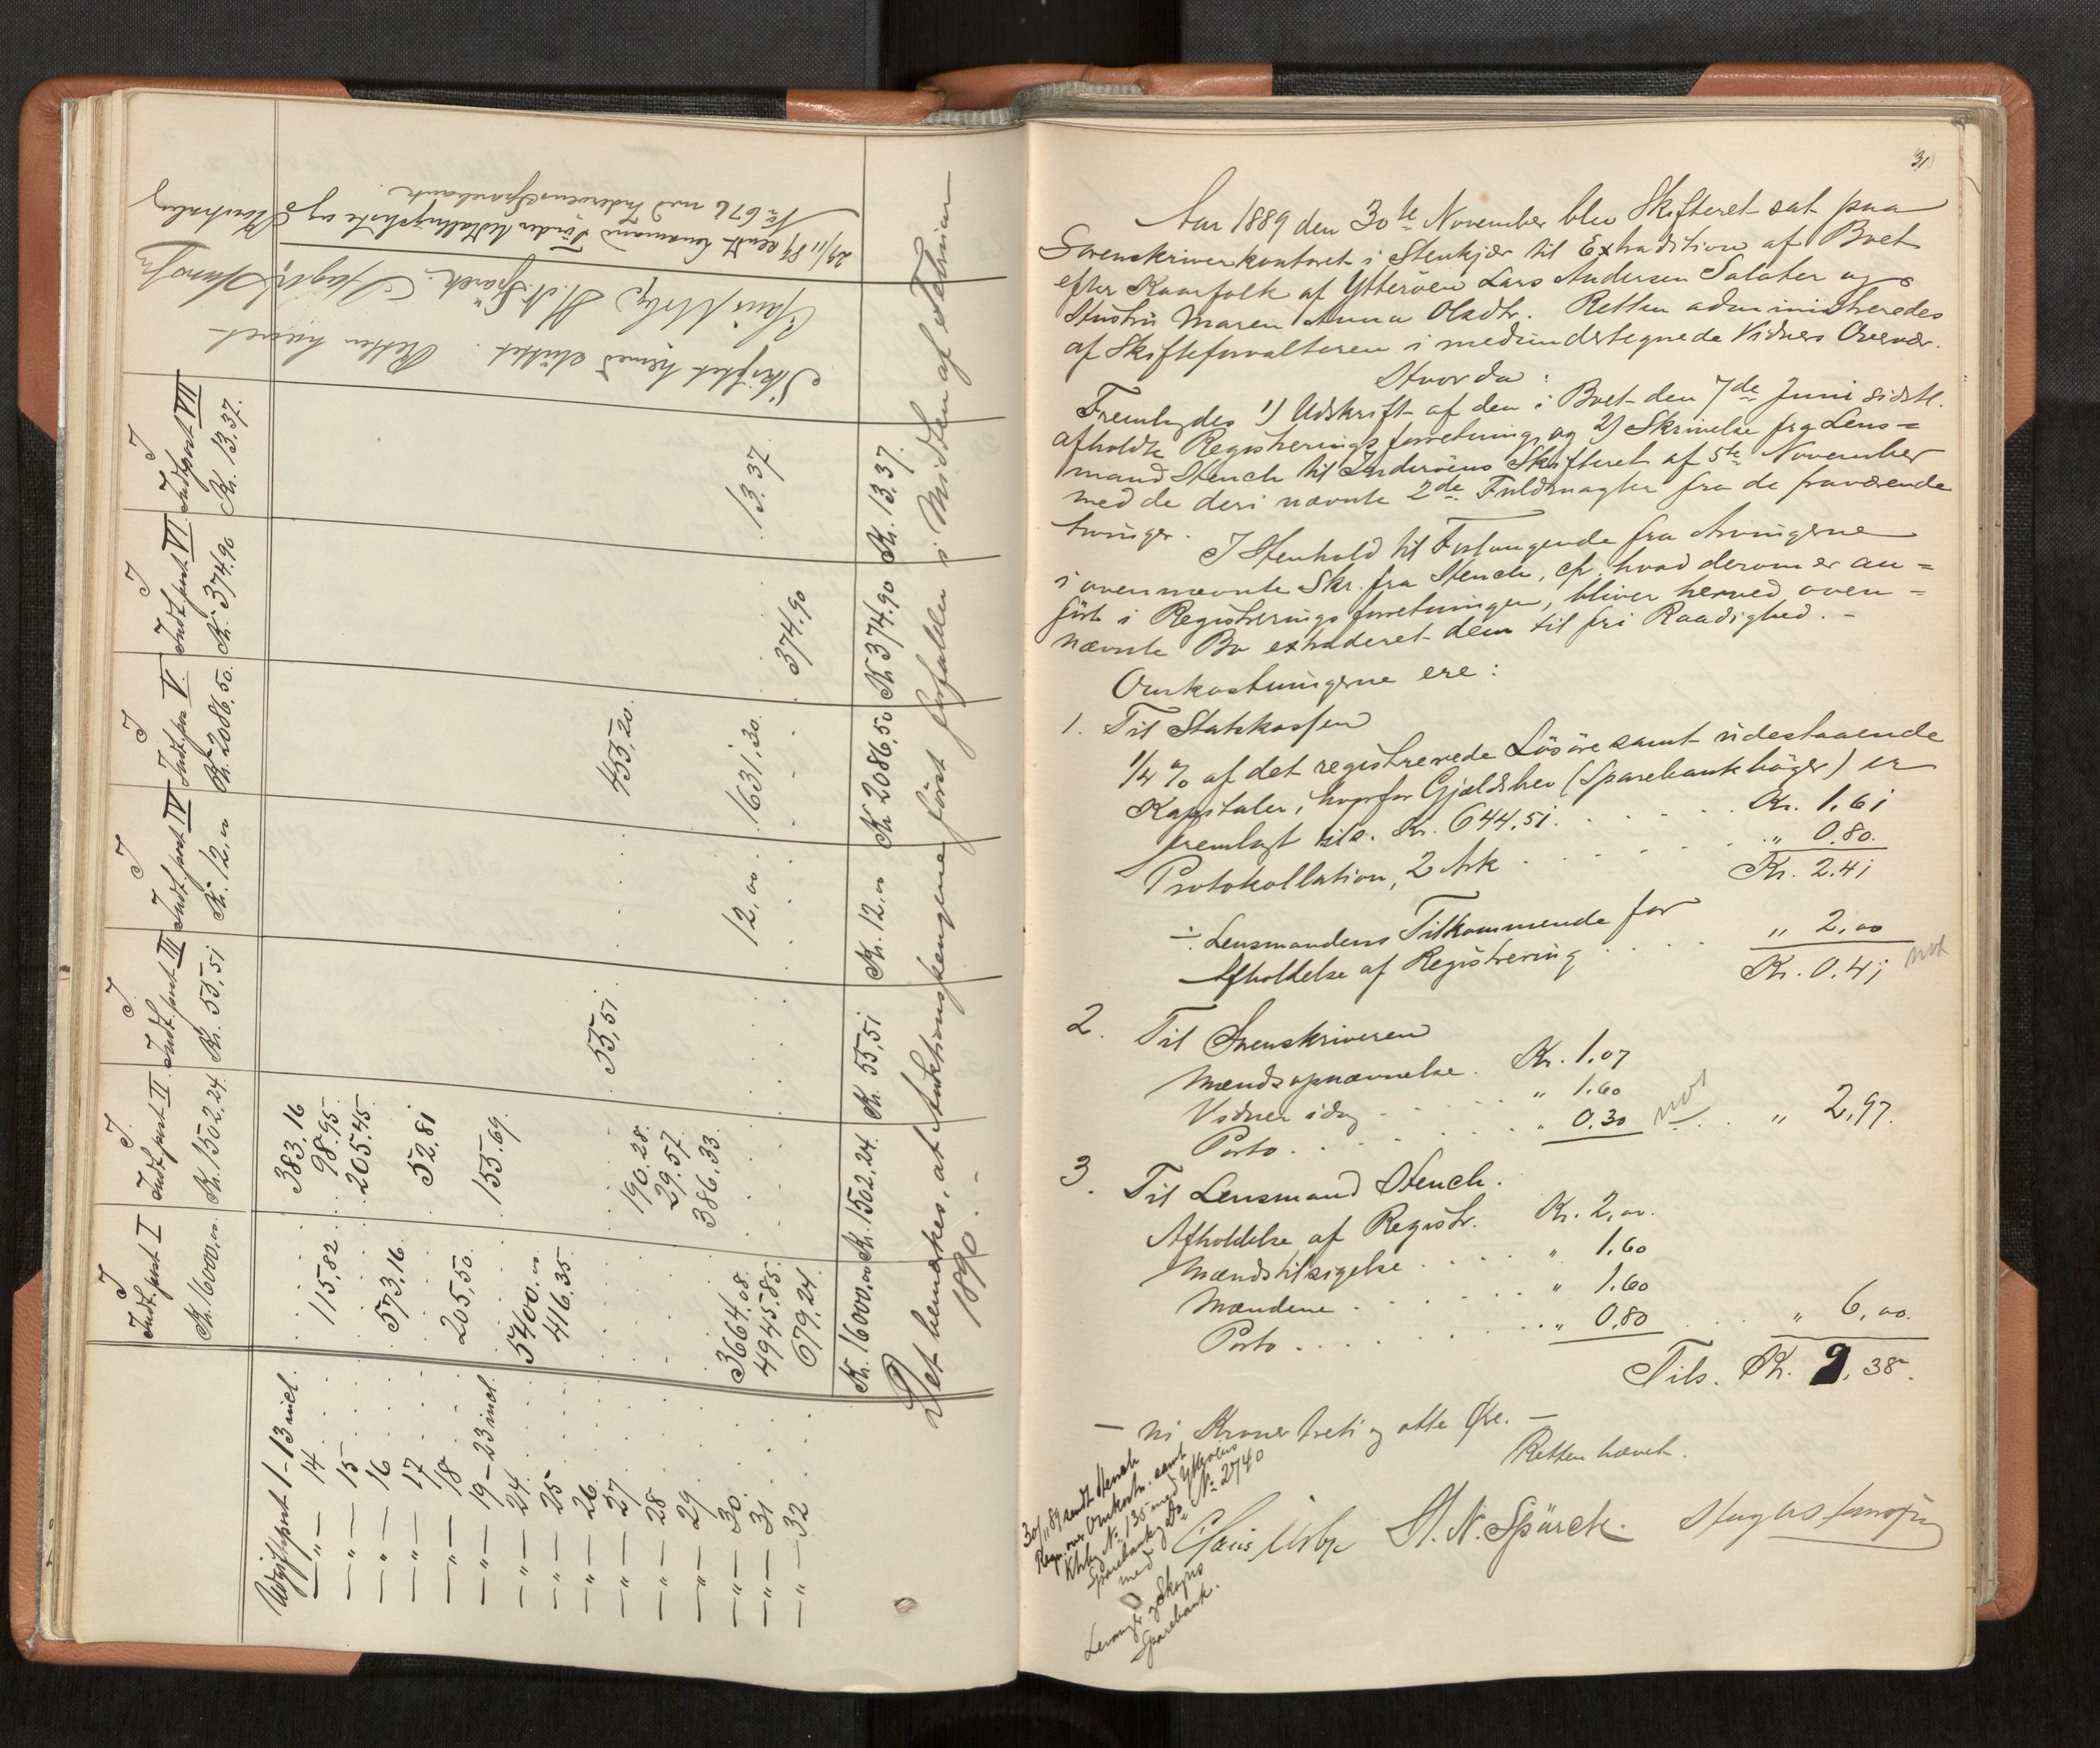 I
Indt.post I
Kr. 16000,00
I
Indt.post II
Kr. 1502.24.
I
Indt.post III
Kr. 55,51
I
Indt.post IV
Kr. 12,00
I
Indt.post V
Kr. 2086.50.
I
Indt.post VI
Kr. 374.90
I
Indt.post VII
Kr. 13.37.
Udgiftspost 1-13 incl. . . 383.16
—„— 14 . . 115.82 . 98.95
—„— 15 . . . 205.45
—„— 16 . . 573.16
—„— 17 . . . 52.81
—„— 18 . . 205,50
—„— 19-23 incl. . . 155.69
—„— 24 . . 5400.00
—„— 25 . . 416.35
—„— 26 . . . . 55,51
—„— 27 . . . . 455,20
—„— 28 . . . 190.28
—„— 29 . . . 29.57
—„— 30 . . 3664.08. 386.33
—„— 31 . . 4945.85 . . 12,00 1631,30. . 13.37
—„— 32 . . 679.24 . . . . 374.90
Kr. 16000,00 Kr. 1502.24. Kr. 55,51 Kr. 12,00 Kr. 2086,50 Kr. 374.90 Kr. 13.37.
Det bemærkes, at Auktionspengene först forfalder i Midten af Februar
1890. –
Skiftet hermed sluttet. Retten hævet
H. N. Spärck.
29/11 89 sendt Lensmand Udlodningsliste og
No 676 med Inderöens Sparebank.
31
Aar 1889 den 30te November blev Skifteret sat paa
Sorenskriverkontoret i Stenkjær til Extradition af Boet
efter Kaarfolk af Ytteröen Lars Andersen Salater og
Hustru Maren Anna Olsdtr. Retten administreredes
af Skifteforvalteren i medundertegnede Vidners Overvær.
Hvorda:
Fremlagdes 1) Udskrift af den i Boet den 7de Juni sidstl.
afholdte Registreringsforretning, og 2) Skrivelse fra Lens=
mand Stench til Inderöens Skifteret af 5te November
med de deri nævnte 2de Fuldmagter fra de fraværende
Arvinger.
I Henhold til Forlangende fra Arvingerne
i ovennævnte Skr. fra Stench, cfr. hvad derom er an=
fört i Registreringsforretningen, bliver herved oven=
nævnte Bo extraderet dem til fri Raadighed. –
Omkostningerne ere:
1. Til Statskassen
1/4 % af det registrerede Lösöre samt udestaaende
Kapitaler, hvorfor Gjældsbrev (Sparebankböger) er
fremlagt tils. Kr. 644.51. . . . . . Kr. 1.61
Protokollation, 2 Ark . . . . . „ 0.80.
Kr. 2.41
÷ Lensmandens Tilkommende for
Afholdelse af Registrering . . . . „ 2,00
Kr. 0.41
2. Til Sorenskriveren
Mændsopnævnelse . Kr. 1.07
Vidner idag . . . . „ 1.60
Porto . . . . . . . „ 0.30 . . „ 2,97.
3. Til Lensmand Stench.
Afholdelse af Registr. Kr. 2,00.
Mændstilsigelse . . . . „ 1.60
Mændene . . . . . . „ 1.60
Porto . . . . . . . „ 0.80 . . . „ 6,00.
Tils. Kr. 9,38.
— ni Kroner treti og otte Öre. —
Retten hævet.
H. N. Spärck.
30/11 89 sendt Stench
Regn. over Omkostn. samt
No 135 med Ytteröens
Sparebank og Do. No 2740
med
Levanger og Skogns
Sparebank.